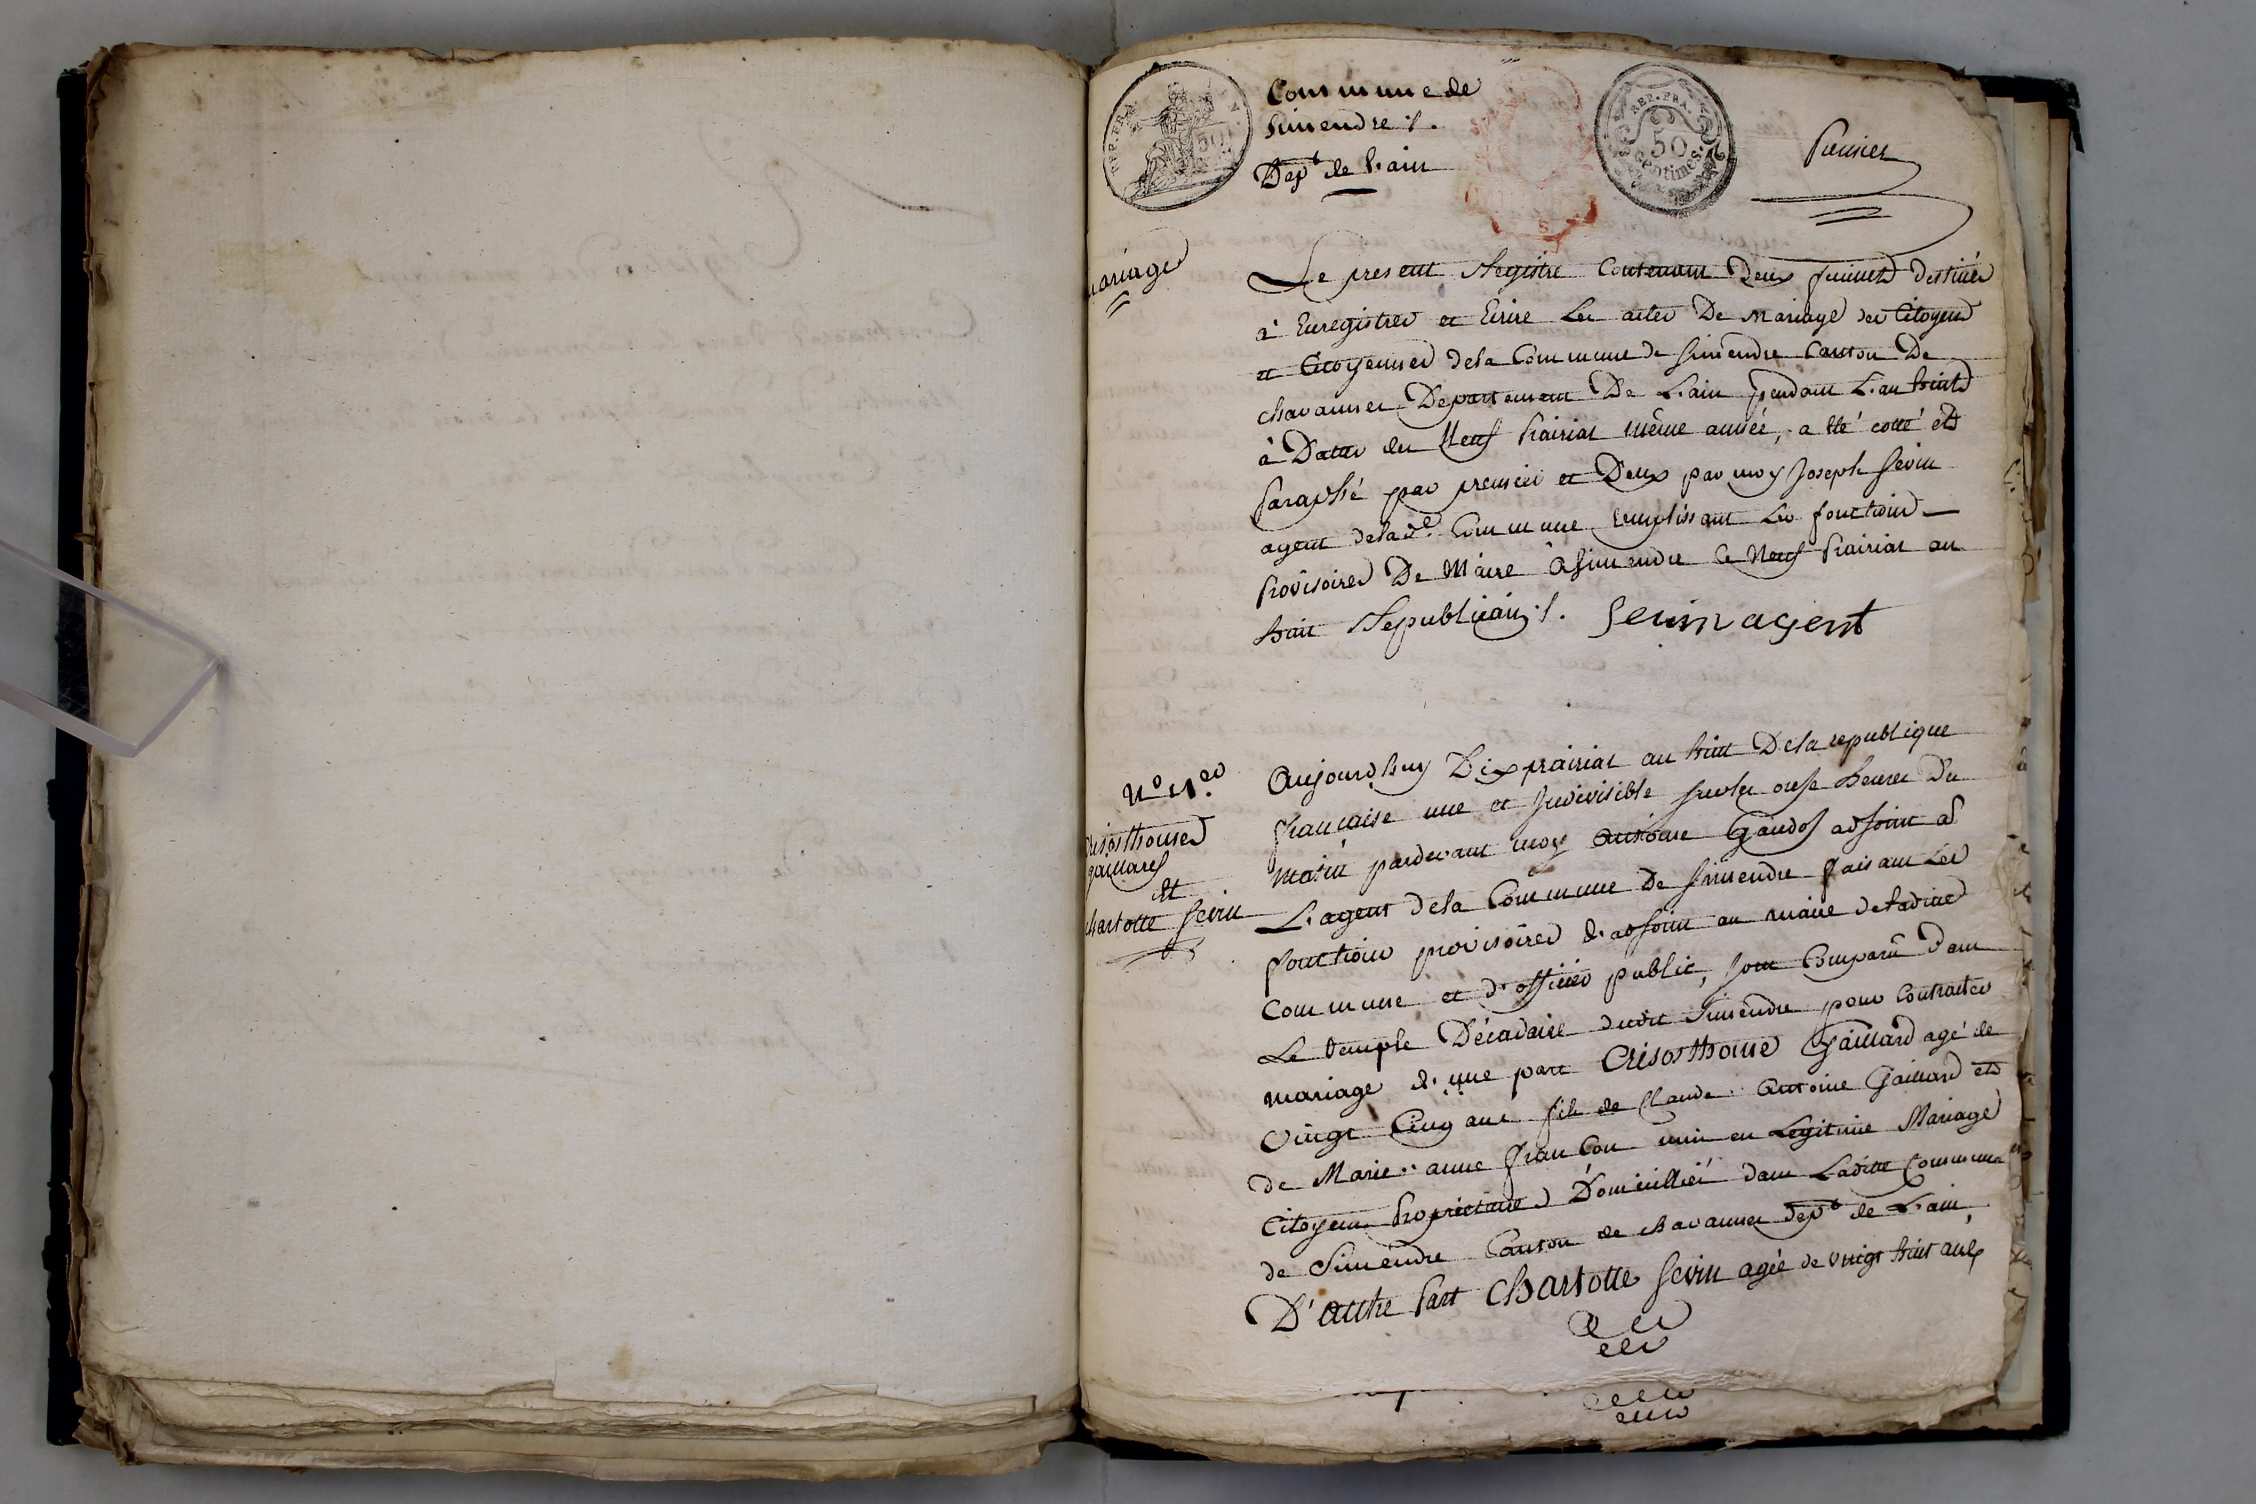 Commune de
Simendre ./.
Dept de L'ain
REP. FRA.
50
REP. FRA.
50
centimes.
Premier
Mariage
Le present Registre Contenant Deux feuillets destinés
à Enregistrer et Ecrire Les actes De Mariage des Citoyens
et Citoyennes de la Commune de Simendre Canton De
chavannes Departement De L'ain pendant L'an huit
à Datter du Neuf Prairial même année, a été cotté et
Paraphé par premier et Deux par moy Joseph Sevin
agent de la de. Commune remplissant Les fonctions
Provisoires De Maire à Simendre le Neuf Prairial an
huit Republicain ./. Sevin agent
Aujourd'huy Dix prairial an huit De la republique
française une et Indivisible sur les onse heures Du
matin pardevant moy Antoine Gaudof adjoint à
L'agent de la Commune De Simendre faisant Les
fonctions provisoires d'adjoint au maire de ladite
Commune et d'officier public, sont Comparu Dans
Le temple Décadaire dudit Simendre pour Contracter
mariage d'une part Crisosthome Gaillard agé de
Vingt Cinq ans fils de Claude Antoine Gaillard et
de Marie anne francon unis en Legitime Mariage
Citoyens Proprietaires Domicilliés dans Laditte Commune
de Simendre Canton de chavannes dept de L'ain,
D'autre Part Charlotte Sevin agée de vingt huit ans
No 1er
Crisosthome
gaillard
et
Charlotte Sevin